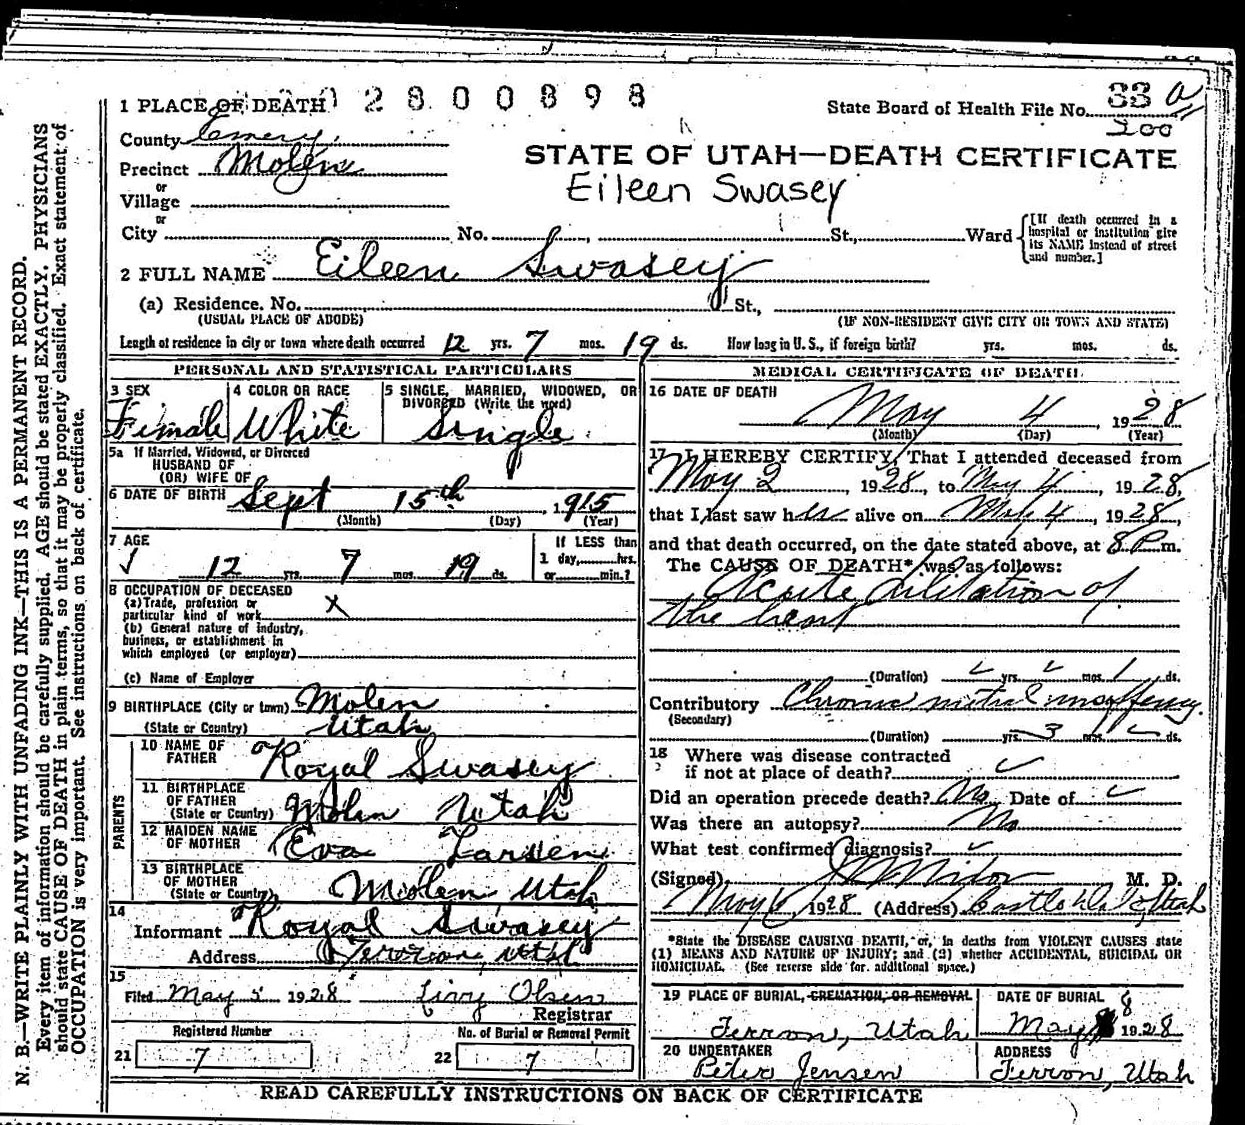 1 PLACE OF DEATH 2800898
State Board of Health File No. 33 a
300
County Emery
Precinct Molen
or
Village
or
City No. St., Ward
[If death occurred in a hospital or institution give its NAME instead of street and number.]
STATE OF UTAH—DEATH CERTIFICATE
Eileen Swasey
2 FULL NAME Eileen Swasey
(a) Residence. No. St.,
(USUAL PLACE OF ABODE) (IF NON-RESIDENT GIVE CITY OR TOWN AND STATE)
Length of residence in city or town where death occurred 12 yrs. 7 mos. 19 ds. How long in U. S., if foreign birth? yrs. mos. ds.
PERSONAL AND STATISTICAL PARTICULARS
3 SEX 4 COLOR OR RACE 5 SINGLE, MARRIED, WIDOWED, OR
DIVORCED (Write the word)
Female White Single
5a If Married, Widowed, or Divorced
HUSBAND OF
(OR) WIFE OF
6 DATE OF BIRTH Sept 15th, 1915
(Month) (Day) (Year)
7 AGE If LESS than
1 day, hrs.
12 yrs. 7 mos. 19 ds. or min.?
8 OCCUPATION OF DECEASED
(a) Trade, profession or
particular kind of work x
(b) General nature of industry,
business, or establishment in
which employed (or employer)
(c) Name of Employer
9 BIRTHPLACE (City or town) Molen
(State or Country) Utah
PARENTS
10 NAME OF
FATHER Royal Swasey
11 BIRTHPLACE
OF FATHER
(State or Country) Molen Utah
12 MAIDEN NAME
OF MOTHER Eva Larsen
13 BIRTHPLACE
OF MOTHER
(State or Country) Molen Utah
14
Informant Royal Swasey
Address Ferron, Utah
15
Filed May 5 1928 Olsen
Registrar
Registered Number No. of Burial or Removal Permit
21 7 22 7
MEDICAL CERTIFICATE OF DEATH
16 DATE OF DEATH
May 4, 1928
(Month) (Day) (Year)
17 I HEREBY CERTIFY, That I attended deceased from
May 2, 1928, to May 4, 1928,
that I last saw her alive on May 4, 1928,
and that death occurred, on the date stated above, at 8 P m.
The CAUSE OF DEATH* was as follows:
Acute dilitation of
the heart
(Duration) yrs. mos. 1 ds.
Contributory Chronic mitral insuffency
(Secondary)
(Duration) yrs. 3 mos. ds.
18 Where was disease contracted
if not at place of death?
Did an operation precede death? No Date of
Was there an autopsy? No
What test confirmed diagnosis?
(Signed) M. D.
May 6, 1928 (Address) Castle Dale, Utah
*State the DISEASE CAUSING DEATH, or, in deaths from VIOLENT CAUSES state
(1) MEANS AND NATURE OF INJURY; and (2) whether ACCIDENTAL, SUICIDAL OR
HOMICIDAL. (See reverse side for additional space.)
19 PLACE OF BURIAL, CREMATION, OR REMOVAL DATE OF BURIAL
Ferron, Utah May 8 1928
20 UNDERTAKER ADDRESS
Peter Jensen Ferron, Utah
READ CAREFULLY INSTRUCTIONS ON BACK OF CERTIFICATE
N. B.—WRITE PLAINLY WITH UNFADING INK—THIS IS A PERMANENT RECORD.
Every item of information should be carefully supplied. AGE should be stated EXACTLY. PHYSICIANS
should state CAUSE OF DEATH in plain terms, so that it may be properly classified. Exact statement of
OCCUPATION is very important. See instructions on back of certificate.